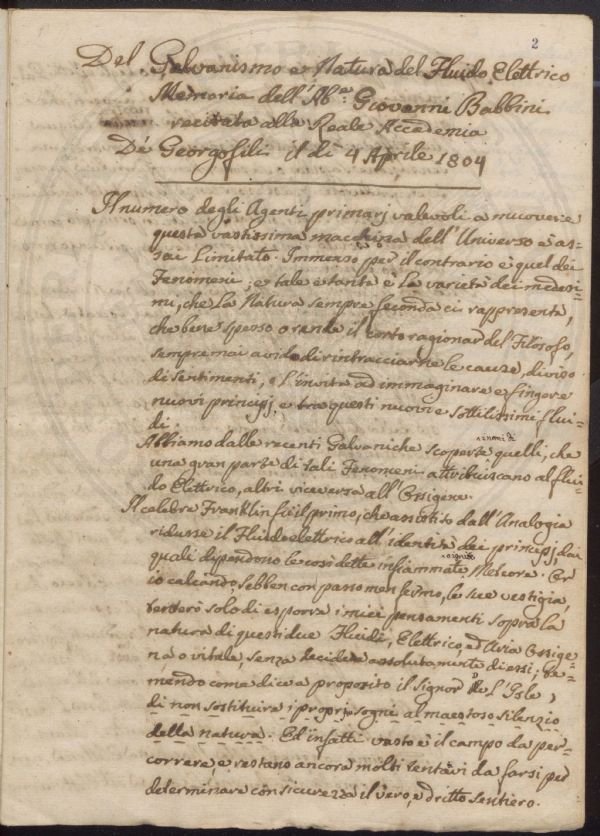 2
Del Galvanismo e Natura del Fluido Elettrico
Memoria dell'Ab.e Giovanni Babbini
recitata alla Reale Accademia
De' Georgofili il dì 4 Aprile 1804
Il numero degli Agenti primarj valevoli a muovere
questa vastissima macchina dell'Universo è as=
sai Limitato. Immenso per il contrario è quel dei
Fenomeni; e tale e tanta è la varietà dei medesi=
mi, che la Natura sempre feconda ci rappresenta,
che bene spesso o rende il corto ragionar del Filosofo,
sempremai avido di rintracciarne le cause, diviso
di sentimenti, o l'invita ad immaginare e fingere
nuovi principj, e tra questi nuovi e sottilissimi flui=
di.
Abbiamo dalle recenti Galvaniche scoperte quelli, che
una gran parte di tali Fenomeni attribuiscano al flui=
do Elettrico, altri viceversa all'Ossigene.
Il celebre Franklin fù il primo, che assistito dall'Analogia
ridusse il Fluido elettrico all'identità dei principj, dai
quali dipendono le così dette infiammate Meteore. Per
io calcando, sebben con passo men fermo, le sue vestigia,
solo di esporre i miei pensamenti sopra la
natura di questi due Fluidi, Elettrico, ed Aria Ossige=
na, o vitale, senza decidere assolutamente di essi; te=
mendo come dice a proposito il Signor De L'Isle,
di non sostituire i proprj sogni al maestoso silenzio
della natura. Ed infatti vasto è il campo da per=
correre, e restano ancora molti tentavi da farsi per
determinare con sicurezza il vero, e dritto sentiero.